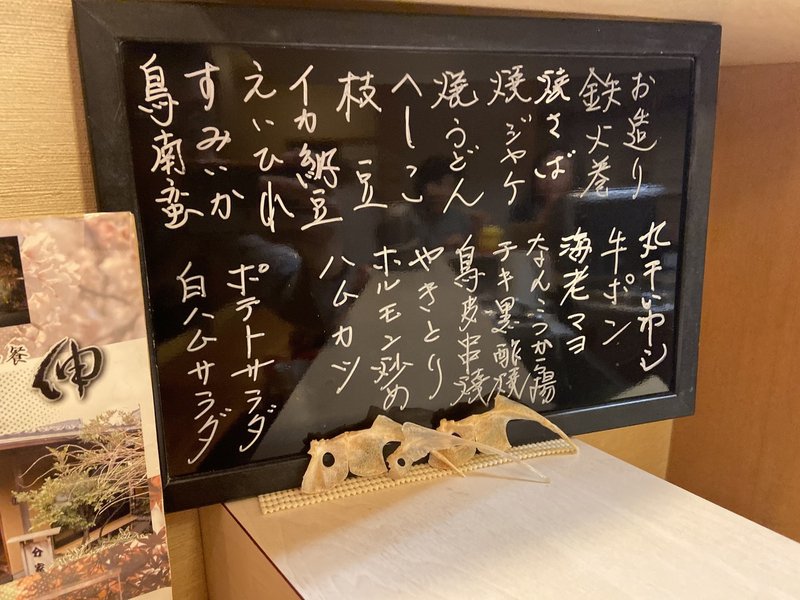 お造り
鉄火巻
焼さば
焼ジャケ
焼うどん
へしこ
枝豆
イカ納豆
えいひれ
すみいか
鳥南蛮
丸干いわし
牛ポン
海老マヨ
なんこつから揚
チキ黒酢焼
鳥皮串焼
やきとり
ホルモン炒め
ハムカツ
ポテトサラダ
白ハムサラダ
餐
伸
分家